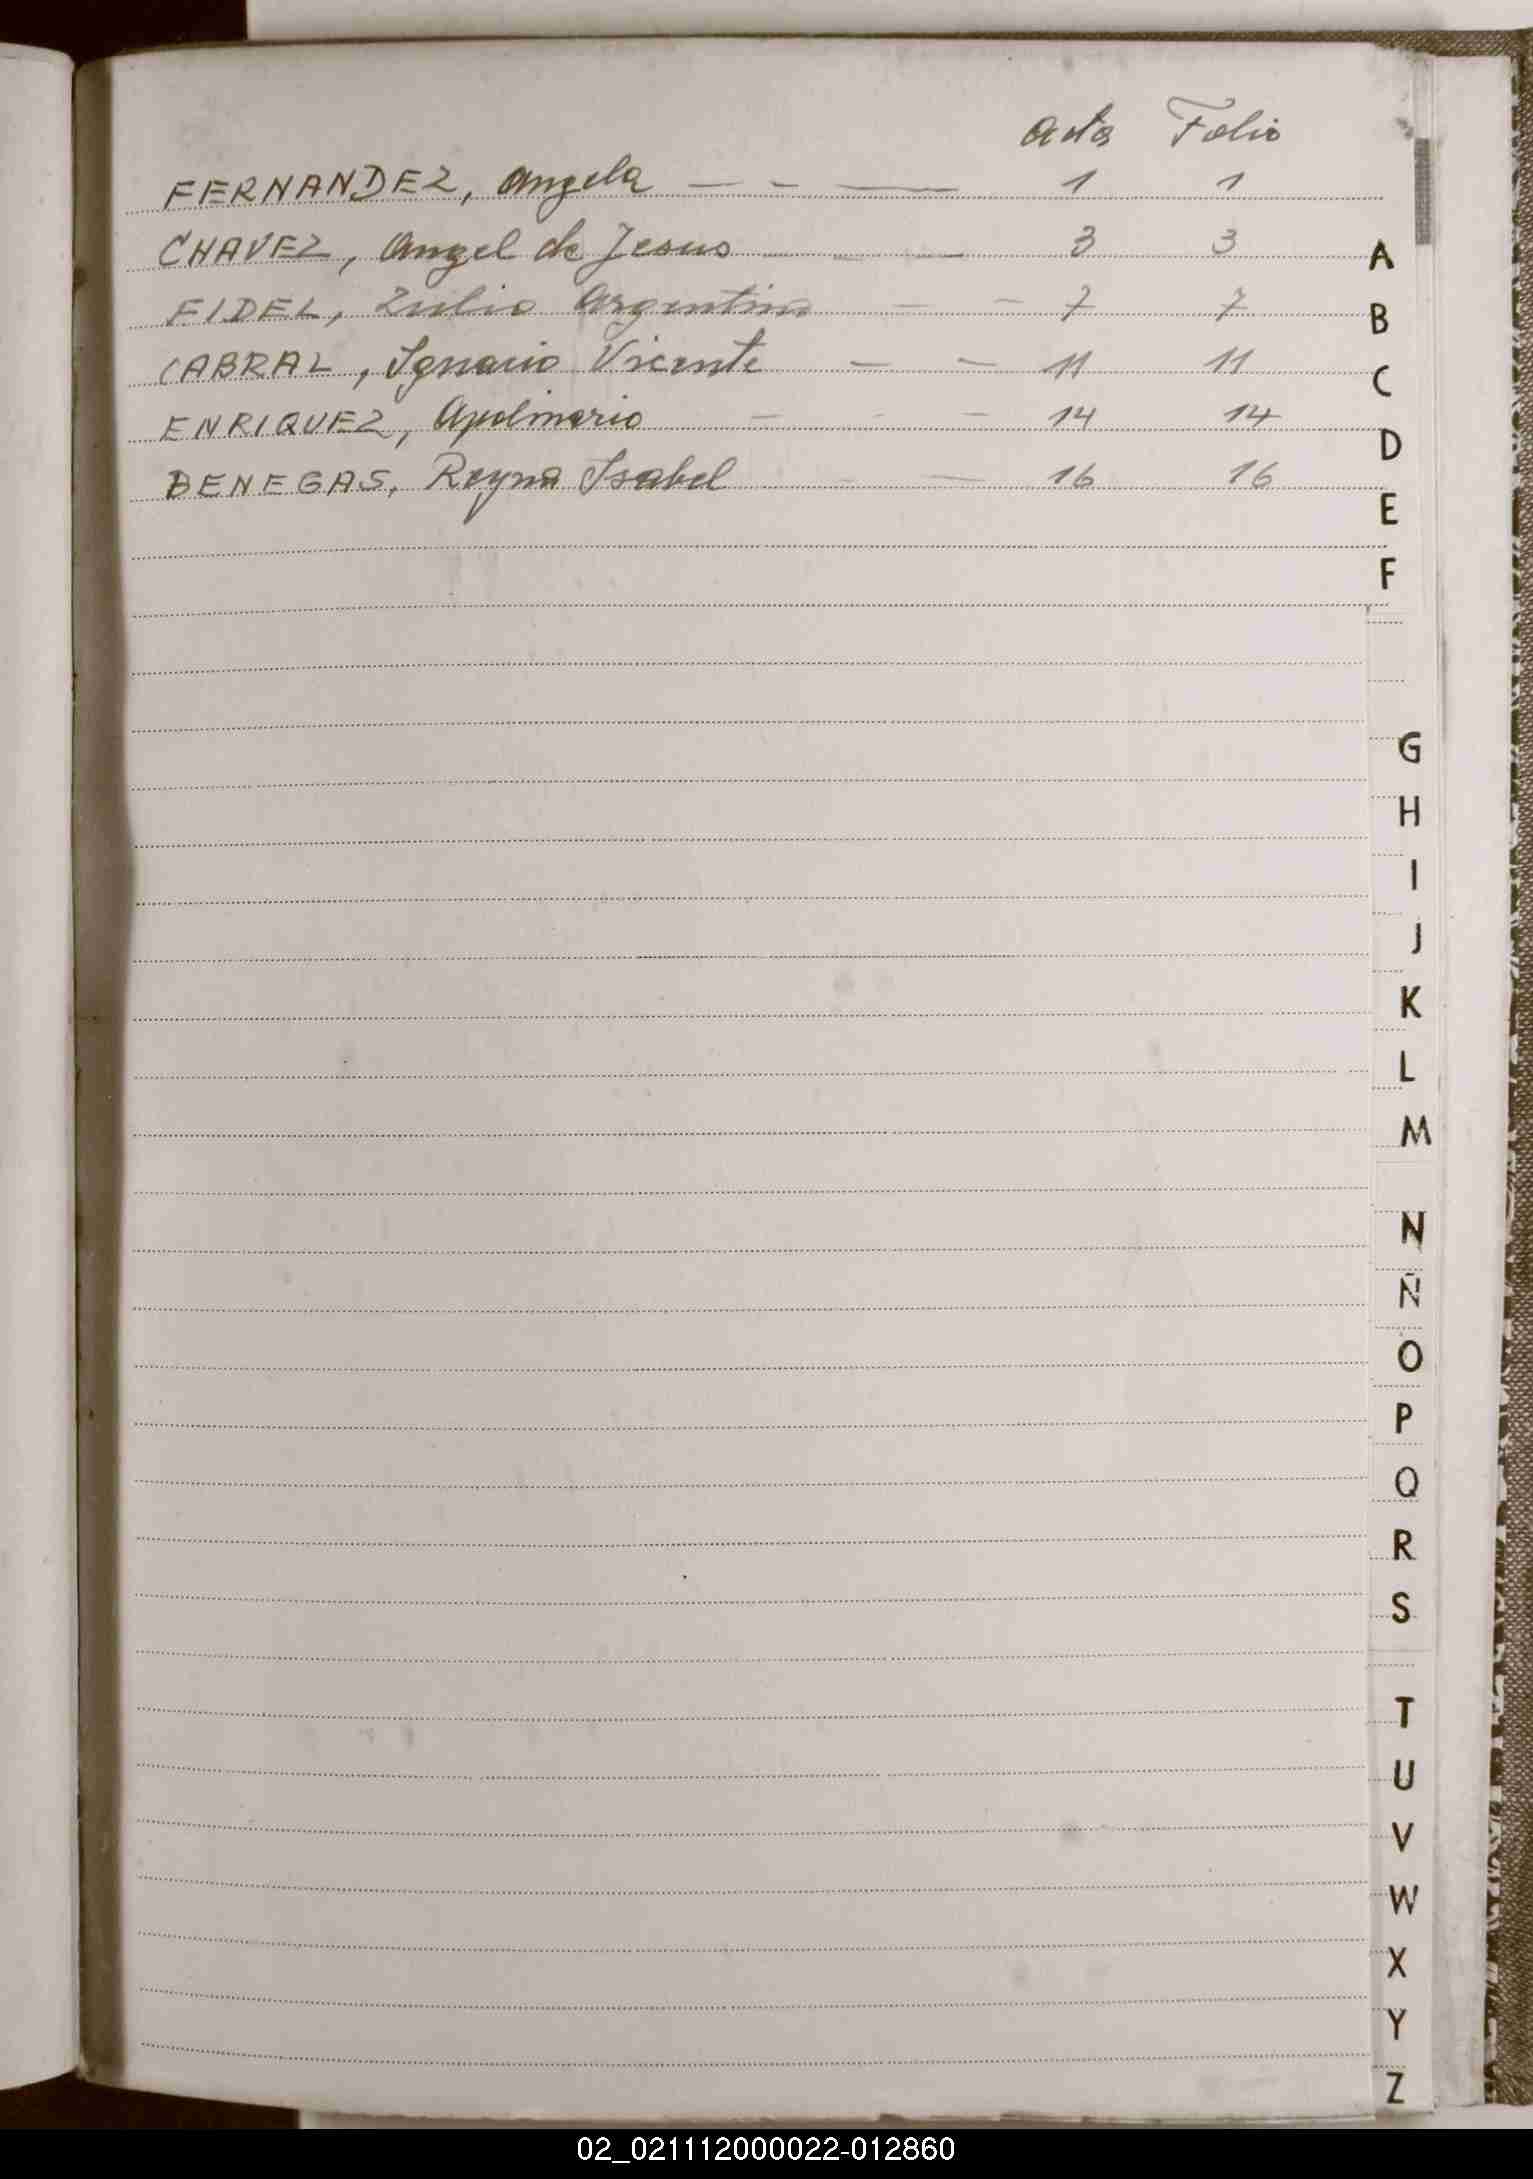 Acta Folio
FERNANDEZ, Angela — - — 1 1
CHAVEZ, Angel de Jesus — - — 3 3
FIDEL, Zulio Argentino — - 7 7
CABRAL, Ignacio Vicente — — 11 11
ENRIQUEZ, Apolinario — - — 14 14
BENEGAS, Reyna Isabel - — 16 16
A
B
C
D
E
F
G
H
I
J
K
L
M
N
Ñ
O
P
Q
R
S
T
U
V
W
X
Y
Z
02_021112000022-012860